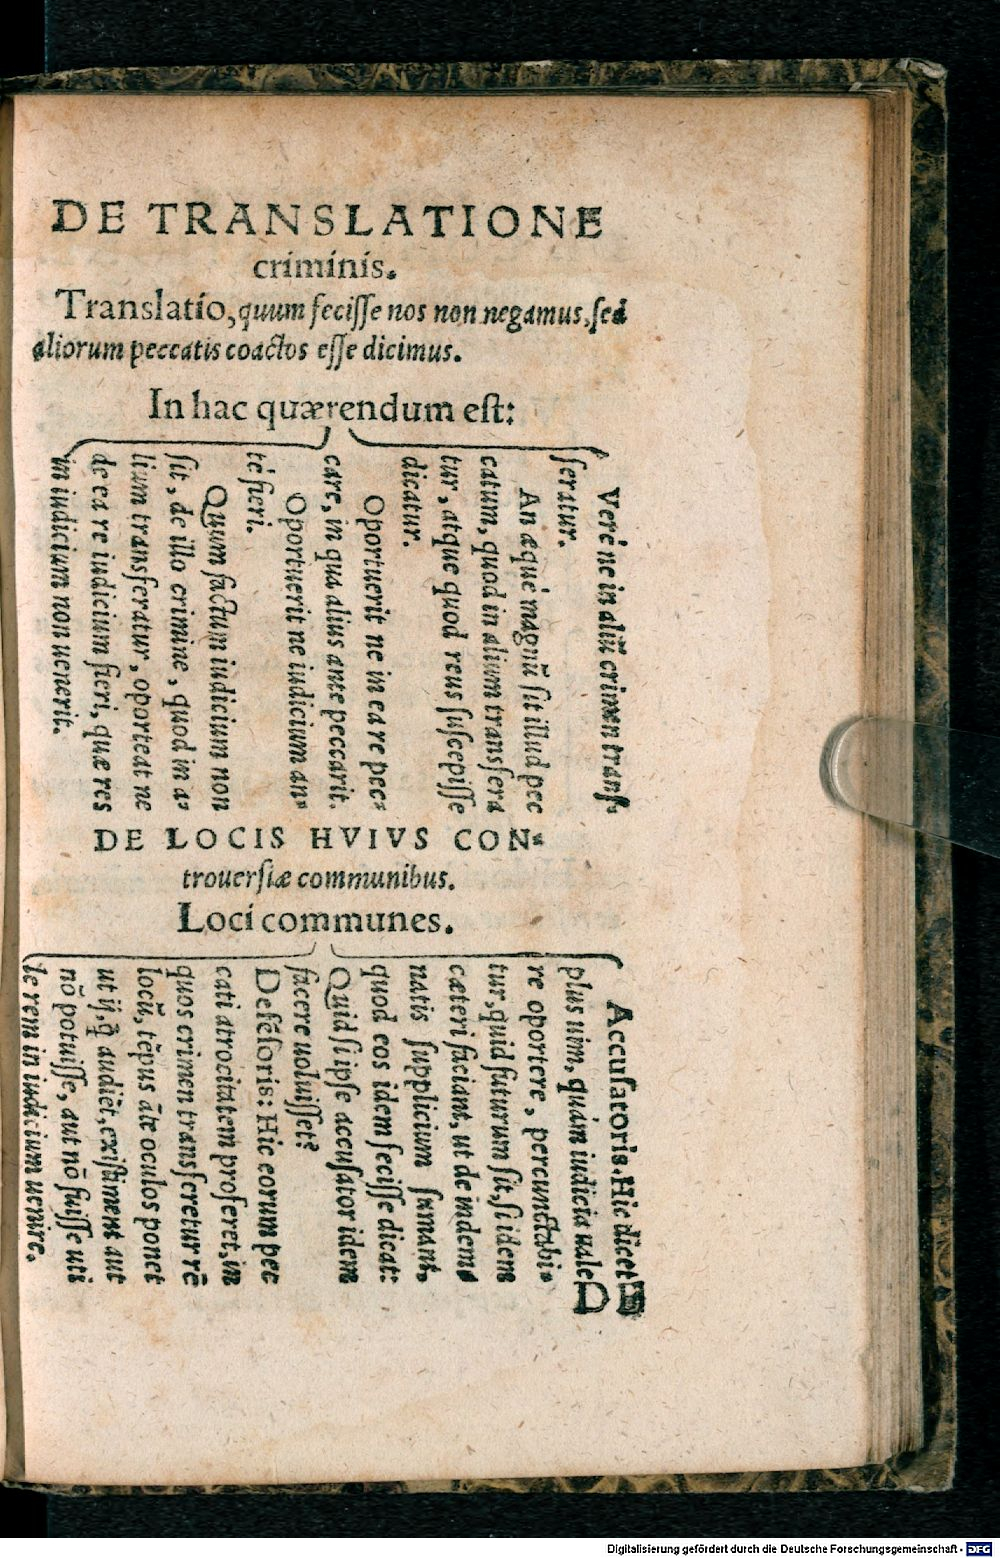 DE TRANSLATIONE
criminis.
Translatio, quum fecisse nos non negamus, sed
aliorum peccatis coactos esse dicimus.
In hac quærendum est:
Veré ne in aliũ crimen trans-
feratur.
An æqué magnũ sit illud pec
catum, quod in alium transfera
tur, atque quod reus suscepisse
dicatur.
Oportuerit ne in ea re pec-
care, in qua alius ante peccarit.
Oportuerit ne iudicium an-
té fieri.
Quum factum iudicium non
sit, de illo crimine, quod in a-
lium transferatur, oporteat ne
de ea re iudicium fieri, quæ res
in iudicium non uenerit.
DE LOCIS HVIVS CON-
trouersiæ communibus.
Loci communes.
Accusatoris. Hic dicet
plus uim, quàm iudicia uale
re oportere, percunctabi-
tur, quid futurum sit, si idem
cæteri faciant, ut de indem-
natis supplicium sumant,
quod eos idem fecisse dicat:
Quid si ipse accusator idem
facere uoluisset?
Defẽsoris: Hic eorum pec
cati atrocitatem proferet, in
quos crimen transferetur rẽ
locũ, tẽpus ãte oculos ponet
ut ij, q̃ audiẽt, existiment aut
nõ potuisse, aut nõ fuisse uti
le rem in iudicium uenire.
D